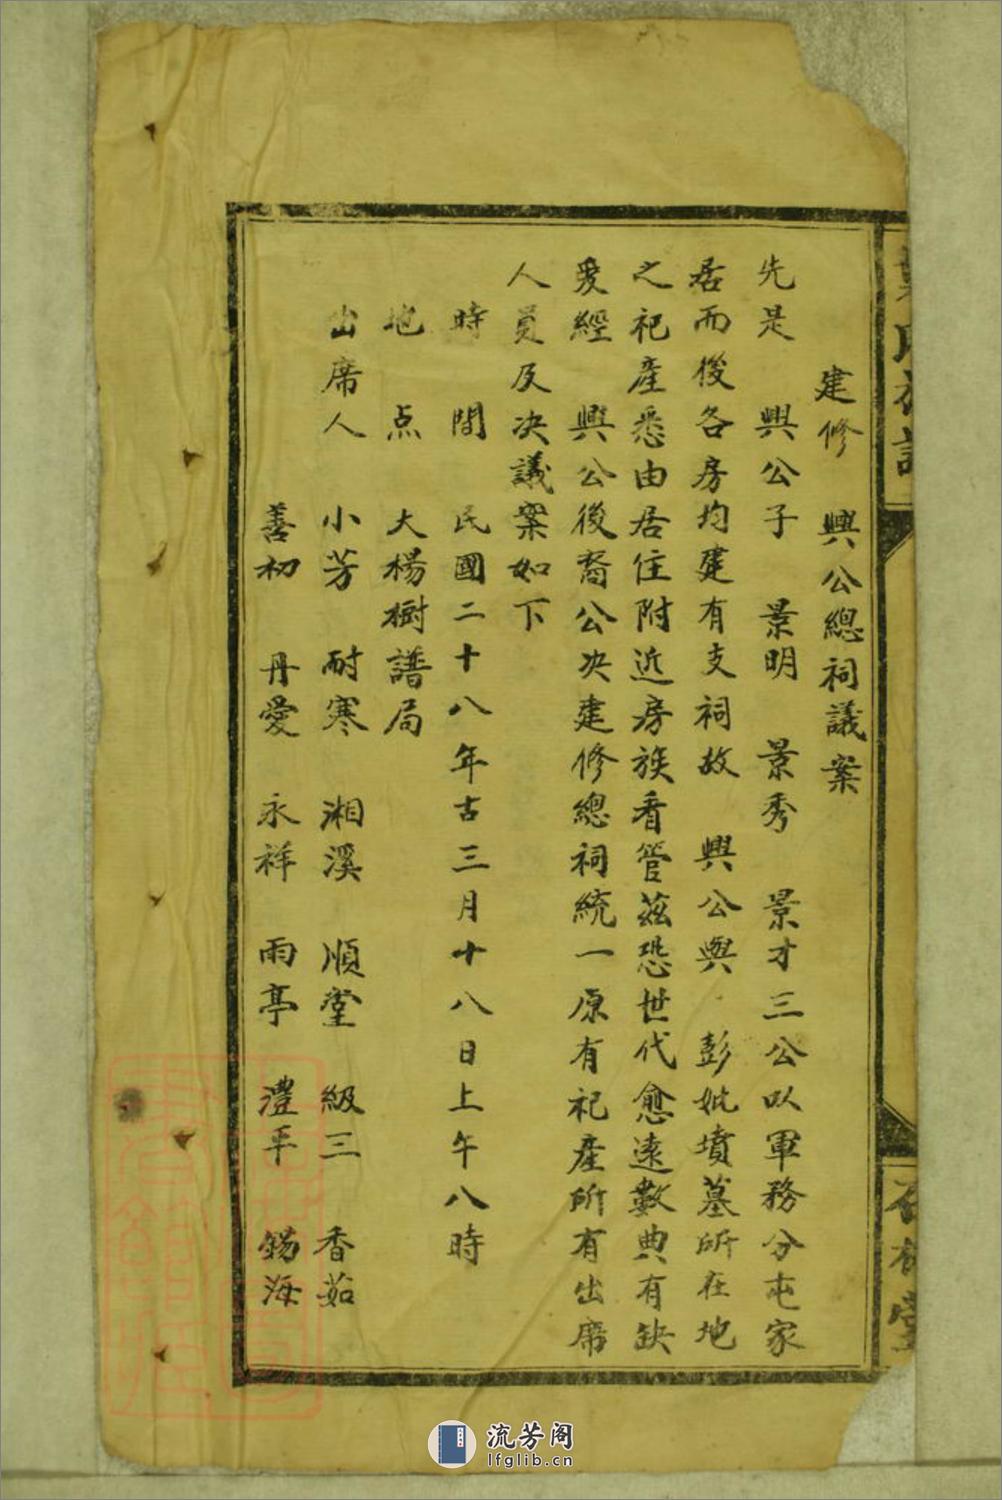 建修　興公總祠議案
先是　興公子　景明　景秀　景才三公以軍務分屯家
居而後各房均建有支祠故　興公與　彭妣墳墓所在地
之祀產悉由居住附近房族看管茲恐世代愈遠數典有缺
爰經　興公後裔公决建修總祠統一原有祀產所有出席
人員及决議案如下
時　間　民國二十八年古三月十八日上午八時
地　点　大楊樹譜局
出席人　小芳　耐寒　湘溪　順堂　級三　香茹
善初　丹愛　永祥　雨亭　澧平　錫海
流芳阁
lfglib.cn